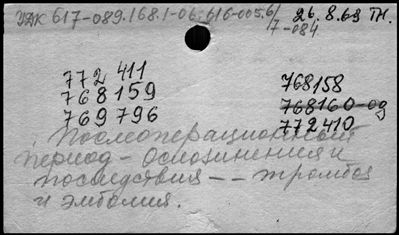 УДК 617-089.168.1-06:616-005.6/
/7-084
26.8.69 ТН.
772 411
768159
769796
768158
768160-од
772410
Послеоперационный
период - Осложнения и
последствия -- тромбоз
и эмболия.